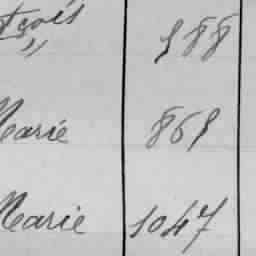 Fçois 988
"
Marie 869
Marie 1047